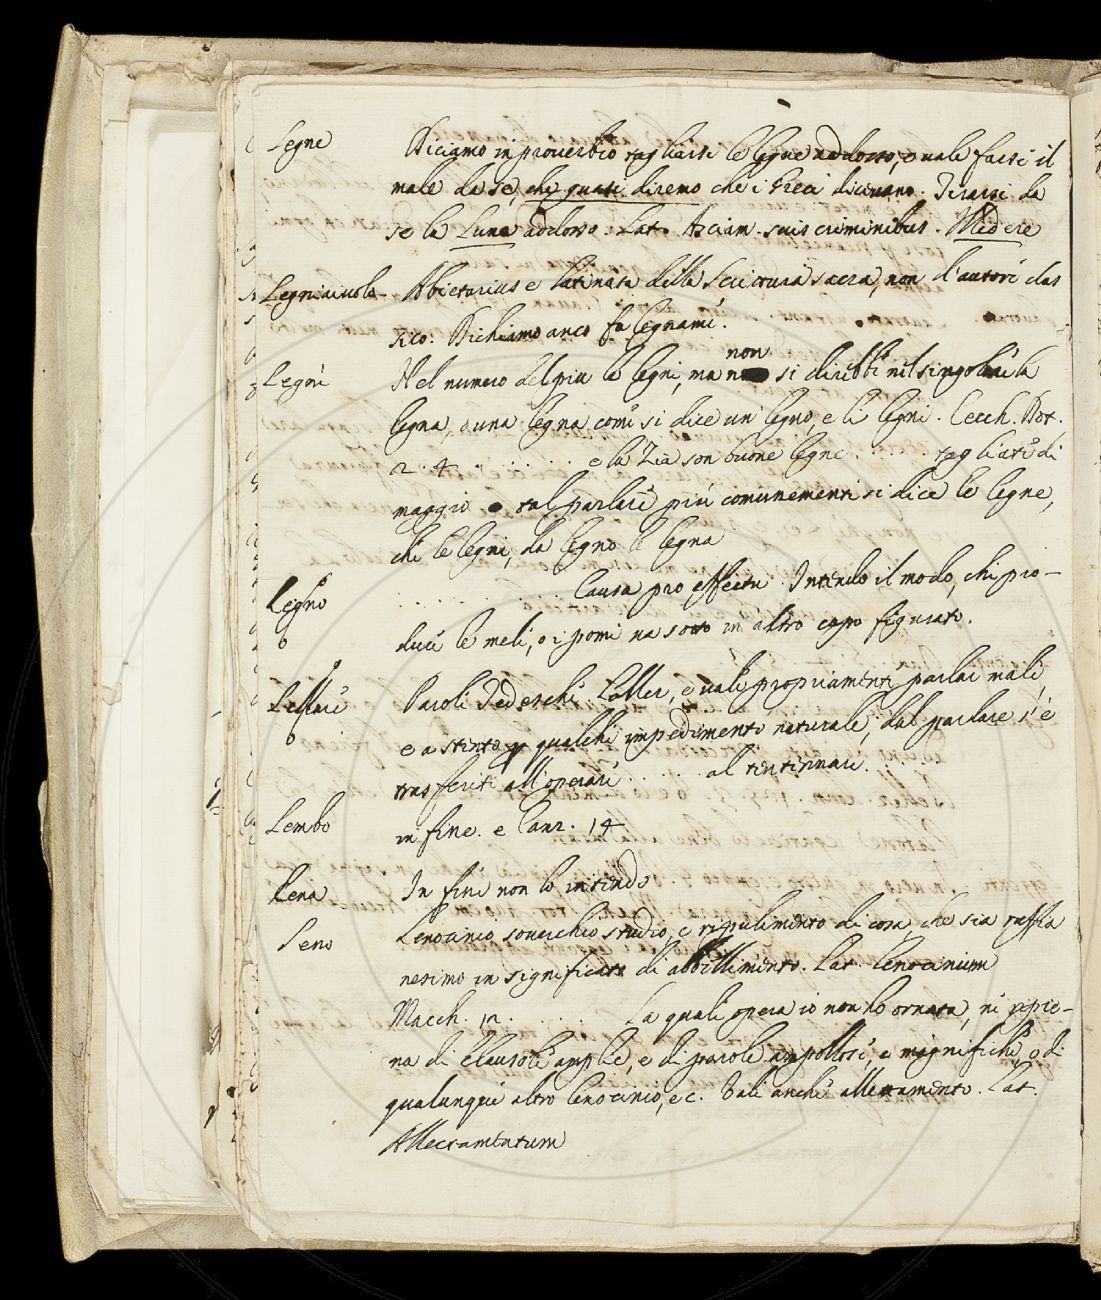 Legne Diciamo in proverbio tagliarsi le legne addosso, e vale farsi il
male da sé, che quasi diremo che i Greci dicevano. Tirarsi da
se la Luna addosso. Lat. Asciam suis criminibus. Medere
Legniaiuolo Abietarius e latinata della Scrittura sacra, non d'autore clas
sico. Dichiamo anco fa legnami.
Legni Nel numero del piu le legni, ma non si direbbe nel singolare la
legna, o una legna come si dice un legno, e li legni. Cecch. Dot.
2. 4. . . . . . e la Zia son buone legne . . . . tagliate di
maggio nel parlare piu comunemente si dice le legne,
che le legni, da legno le legna
Legno . . . . . . . . Causa pro effectu. Intendo il modo, che pro-
o duce le mele, o i pomi va sotto in altro capo figurato.
Lellare Parole Tedesche Laller, e vale propriamente parlar male
o e a stento per qualche impedimento naturale, dal parlare s'è
trasferite all'operare . . . . . al tentennare.
Lembo in fine. e Canz. 14
Lena In fine non lo intendo.
Leno Lenocinio soverchio studio, e ripulimento di cosa che sia ruffia
nesimo in significato di abbellimento. Lat. Lenocinium
Macch. . . . . . la quale opera io non ho ornata, ne ripie-
na di clausole ample, o di parole ampollose, e magnifiche, o di
qualunque altro lenocinio, ec. Vale anche allettamento. Lat.
Allectamentum